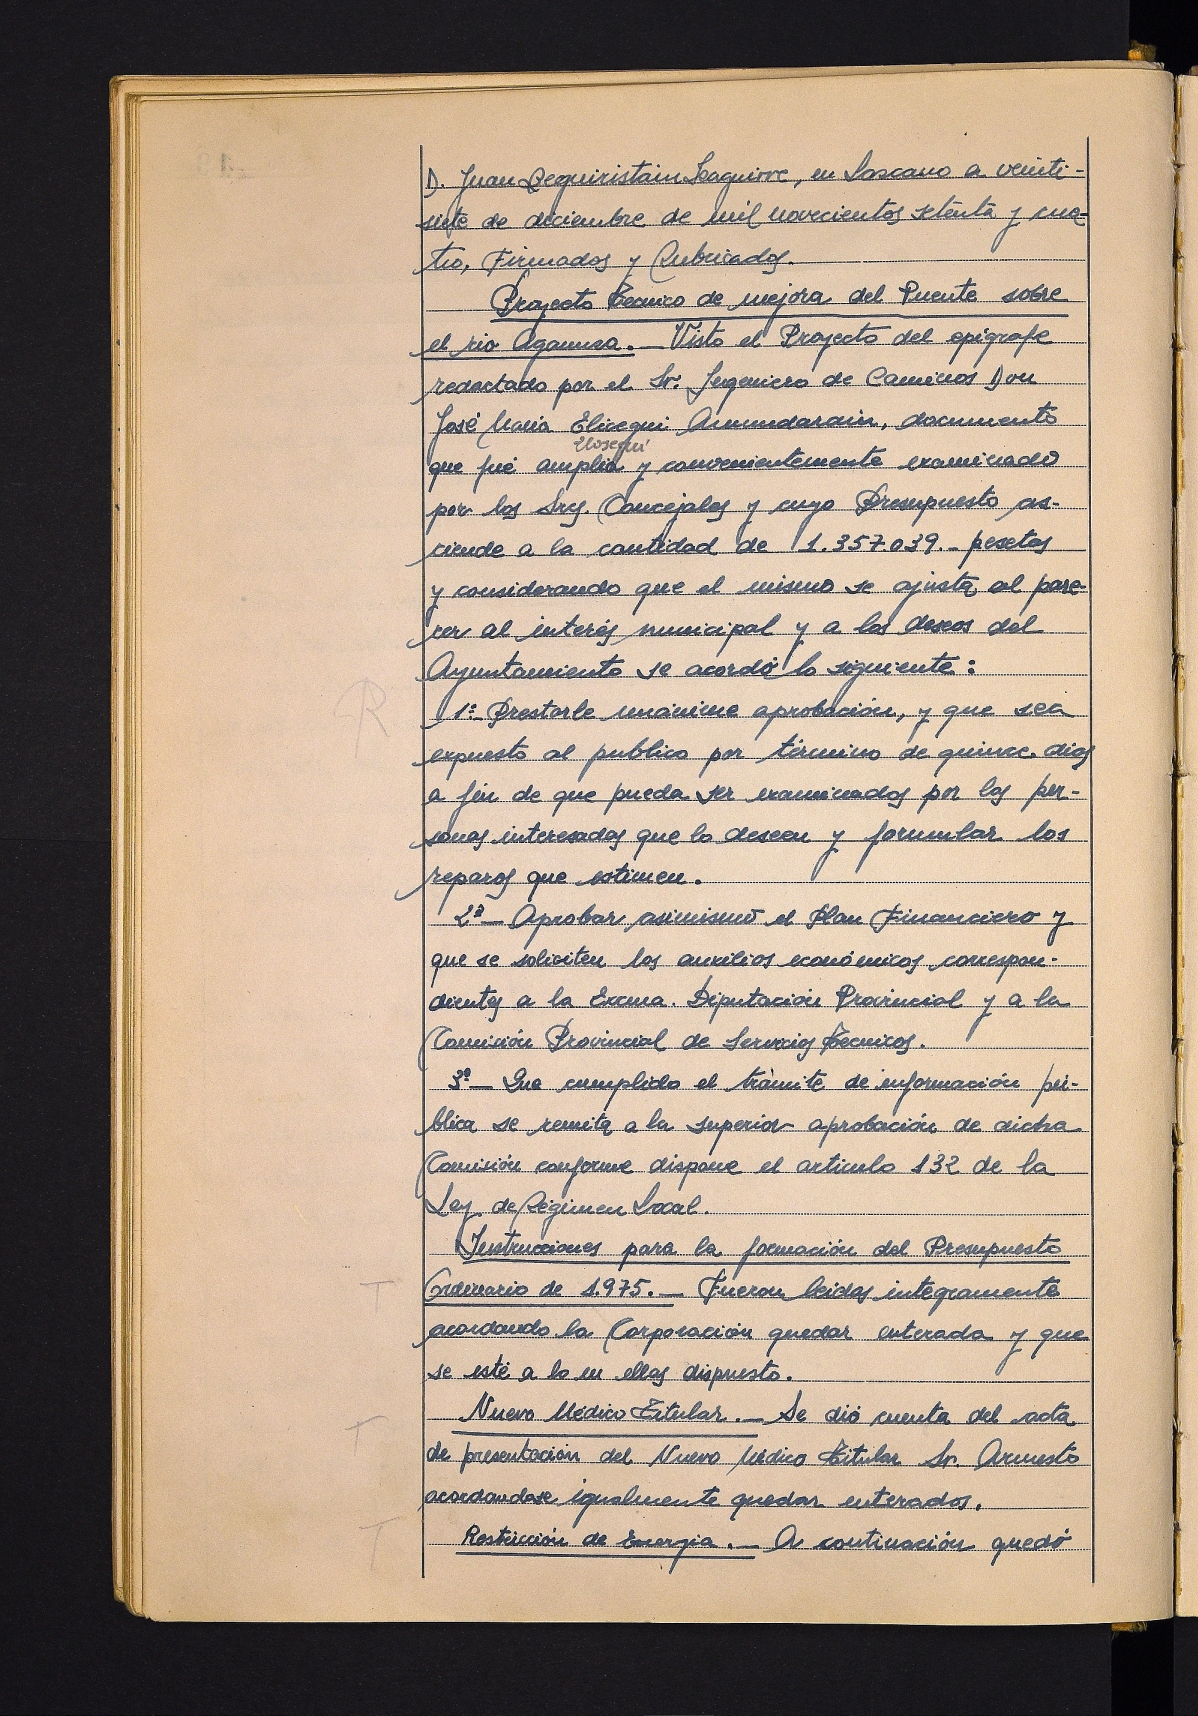 D. Juan Beguiristain Izaguirre, en Lazcano a veinti-
siete de diciembre de mil novecientos setenta y cua-
tro, Firmados y Rubricados.
Proyecto Técnico de mejora del Puente sobre
el rio Agaunza.— Visto el Proyecto del epígrafe
redactado por el Sr. Ingeniero de Caminos Don
José Maria Elicegui Amundarain, documento
Elosegui
que fué amplia y convenientemente examinado
por los Srs. Concejales y cuyo Presupuesto as-
ciende a la cantidad de 1.357.039.- pesetas
y considerando que el mismo se ajusta al pare-
cer al interés municipal y a los deseos del
Ayuntamiento se acordó lo siguiente:
R
1º- Prestarle unánime aprobación, y que sea
expuesto al publico por término de quince dias
a fin de que pueda ser examinados por las per-
sonas interesadas que lo deseen y formular los
reparos que estimen.
2º— Aprobar asimismo el Plan Financiero y
que se soliciten los auxilios económicos correspon-
dientes a la Excma. Diputación Provincial y a la
Comisión Provincial de Servicios Técnicos.
3º— Que cumplido el trámite de información pú-
blica se remita a la superior aprobación de dicha
Comisión conforme dispone el articulo 132 de la
Ley de Régimen Local.
Instrucciones para la formación del Presupuesto
T
Ordinario de 1.975.— Fueron leidas integramente
acordando la Corporación quedar enterada y que
se esté a lo en ellas dispuesto.
T
Nuevo Médico Titular.— Se dió cuenta del acta
de presentación del Nuevo Médico Titular Sr. Armesto
acordandose igualmente quedar enterados.
T
Restricción de Energia.— A continuación quedó